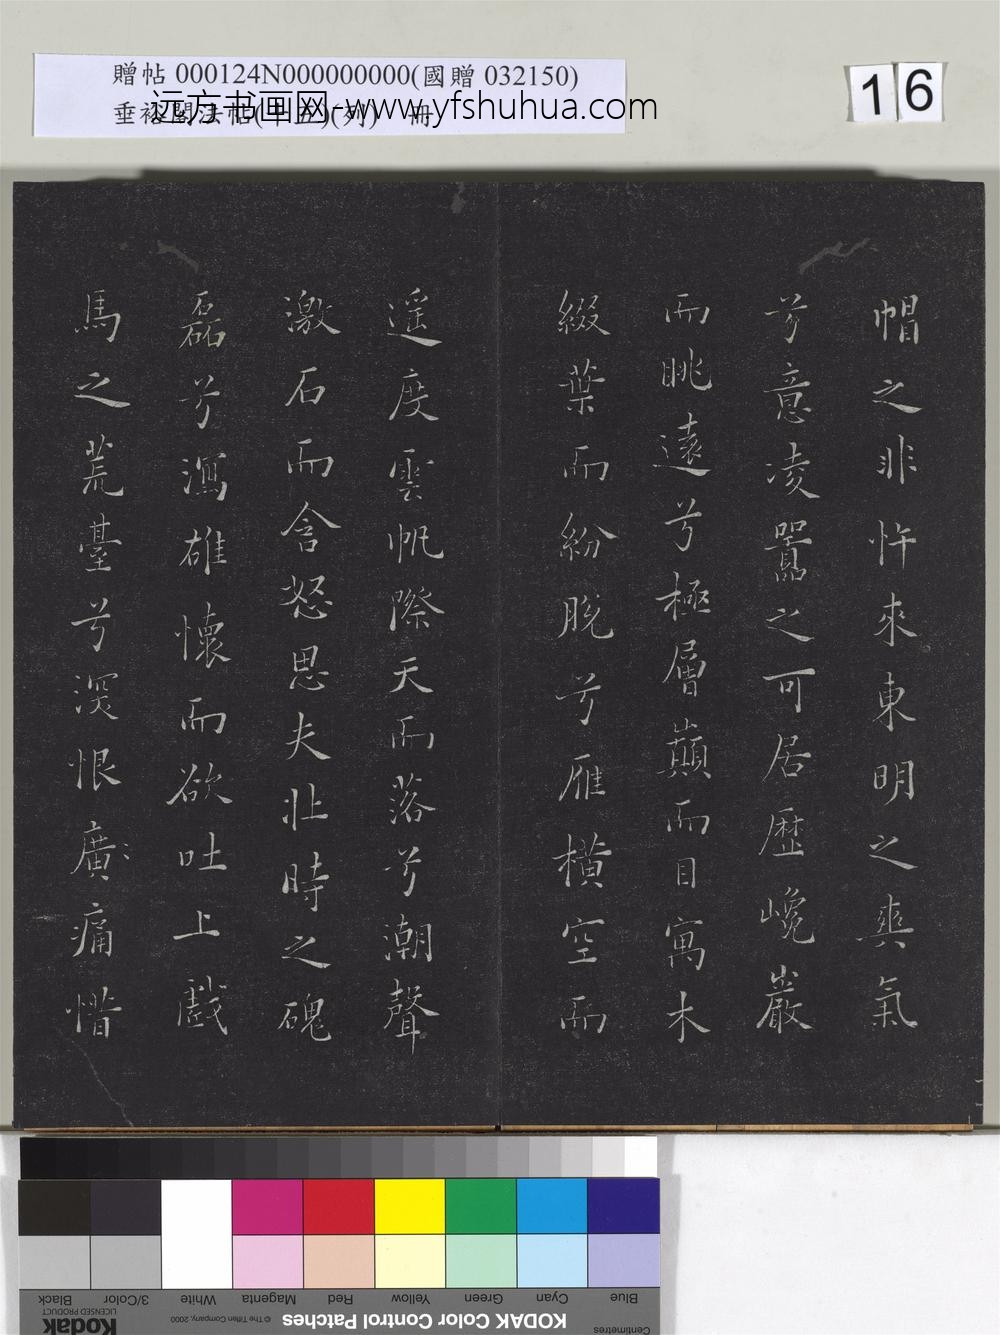 贈帖 000124N000000000(國贈 032150)
远方书画网-www.yfshuhua.com
垂裕閣法帖(十五)(列) 冊
16
帽之非忤來東明之爽氣
兮意凌囂之可居歷巉巖
而眺遠兮極層巔而目寓木
綴葉而紛脫兮雁橫空而
遥度雲帆際天而落兮潮聲
激石而含怒思夫壯時之磈
磊兮瀉雄懷而欲吐上戲
馬之荒臺兮深恨廣痛惜
Blue Cyan Green Yellow Red Magenta White 3/Color Black
Centimetres
KODAK Color Control Patches
© The Tiffen Company, 2000
Kodak
LICENSED PRODUCT